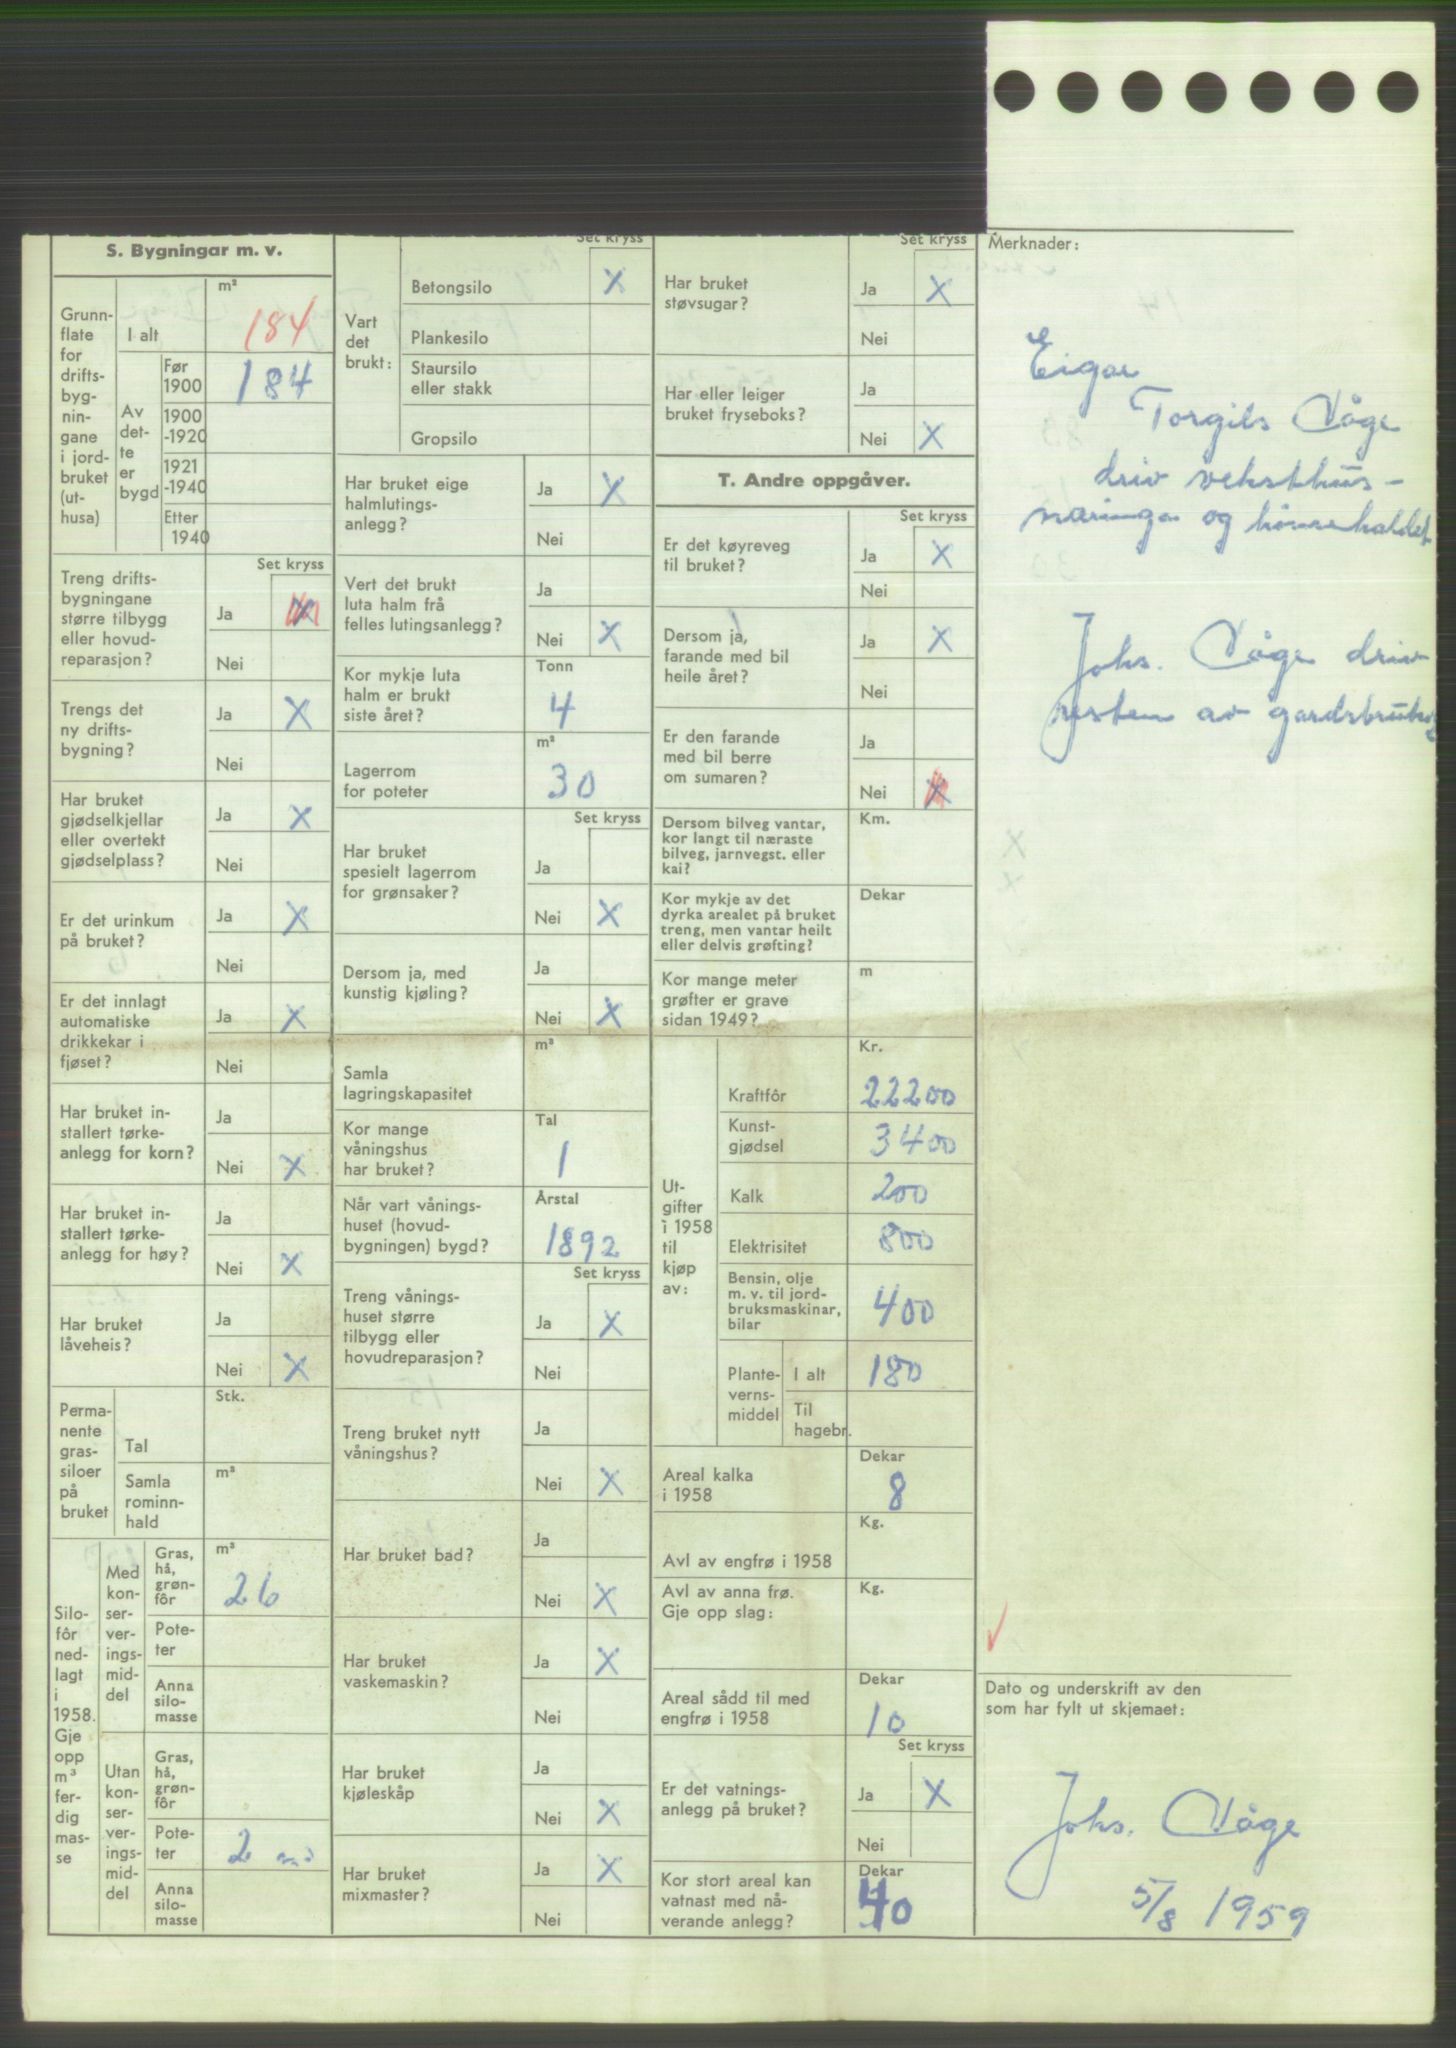 S. Bygningar m. v.
Grunn-
flate
for
drifts-
byg-
nin-
gane
i jord-
bruket
(ut-
husa)
I alt
m²
184
Av
det-
te
er
bygd
Før
1900
184
1900
-1920
1921
-1940
Etter
1940
Set kryss
Treng drifts-
bygningane
større tilbygg
eller hovud-
reparasjon?
Ja X
Nei
Trengs det
ny drifts-
bygning?
Ja X
Nei
Har bruket
gjødselkjellar
eller overtekt
gjødselplass?
Ja X
Nei
Er det urinkum
på bruket?
Ja X
Nei
Er det innlagt
automatiske
drikkekar i
fjøset?
Ja X
Nei
Har bruket in-
stallert tørke-
anlegg for korn?
Ja
Nei X
Har bruket in-
stallert tørke-
anlegg for høy?
Ja
Nei X
Har bruket
låveheis?
Ja
Nei X
Perma-
nente
gras-
siloer
på
bruket
Tal
Stk.
Samla
rominn-
hald
m³
Silo-
fôr
ned-
lagt
i
1958.
Gje
opp
m³
fer-
dig
mas-
se
Med
kon-
ser-
ver-
ings-
mid-
del
Gras,
hå,
grøn-
fôr
m³
26
Pote-
ter
Anna
silo-
masse
Utan
kon-
ser-
ver-
ings-
mid-
del
Gras,
hå,
grøn-
fôr
Pote-
ter
2
Anna
silo-
masse
Set kryss
Vart
det
brukt:
Betongsilo X
Plankesilo
Staursilo
eller stakk
Gropsilo
Har bruket eige
halmlutings-
anlegg?
Ja X
Nei
Vert det brukt
luta halm frå
felles lutingsanlegg?
Ja
Nei X
Kor mykje luta
halm er brukt
siste året?
Tonn
4
Lagerrom
for poteter
m²
30
Set kryss
Har bruket
spesielt lagerrom
for grønsaker?
Ja
Nei X
Dersom ja, med
kunstig kjøling?
Ja
Nei X
Samla
lagringskapasitet
m³
Kor mange
våningshus
har bruket?
Tal
1
Når vart vånings-
huset (hovud-
bygningen) bygd?
Årstal
1892
Set kryss
Treng vånings-
huset større
tilbygg eller
hovudreparasjon?
Ja X
Nei
Treng bruket nytt
våningshus?
Ja
Nei X
Har bruket bad?
Ja
Nei X
Har bruket
vaskemaskin?
Ja X
Nei
Har bruket
kjøleskåp
Ja
Nei X
Har bruket
mixmaster?
Ja X
Nei
Set kryss
Har bruket
støvsugar?
Ja X
Nei
Har eller leiger
bruket fryseboks?
Ja
Nei X
T. Andre oppgåver.
Set kryss
Er det køyreveg
til bruket?
Ja X
Nei
Dersom ja,
farande med bil
heile året?
Ja X
Nei
Er den farande
med bil berre
om sumaren?
Ja
Nei X
Dersom bilveg vantar,
kor langt til næraste
bilveg, jarnvegst. eller
kai?
Km.
Kor mykje av det
dyrka arealet på bruket
treng, men vantar heilt
eller delvis grøfting?
Dekar
Kor mange meter
grøfter er grave
sidan 1949?
m
Ut-
gifter
i 1958
til
kjøp
av:
Kr.
Kraftfôr 22200
Kunst-
gjødsel 3400
Kalk 200
Elektrisitet 800
Bensin, olje
m. v. til jord-
bruksmaskinar,
bilar 400
Plante-
verns-
middel
I alt 180
Til
hagebr.
Areal kalka
i 1958
Dekar
8
Avl av engfrø i 1958
Kg.
Avl av anna frø.
Gje opp slag:
Kg.
Areal sådd til med
engfrø i 1958
Dekar
10
Set kryss
Er det vatnings-
anlegg på bruket?
Ja X
Nei
Kor stort areal kan
vatnast med nå-
verande anlegg?
Dekar
40
Merknader:
Eigar
Torgils Våge
driv veksthus-
næringa og hønsehaldet
Johs. Våge driv
resten av gardsbruket
Dato og underskrift av den
som har fylt ut skjemaet:
Johs. Våge
5/8 1959